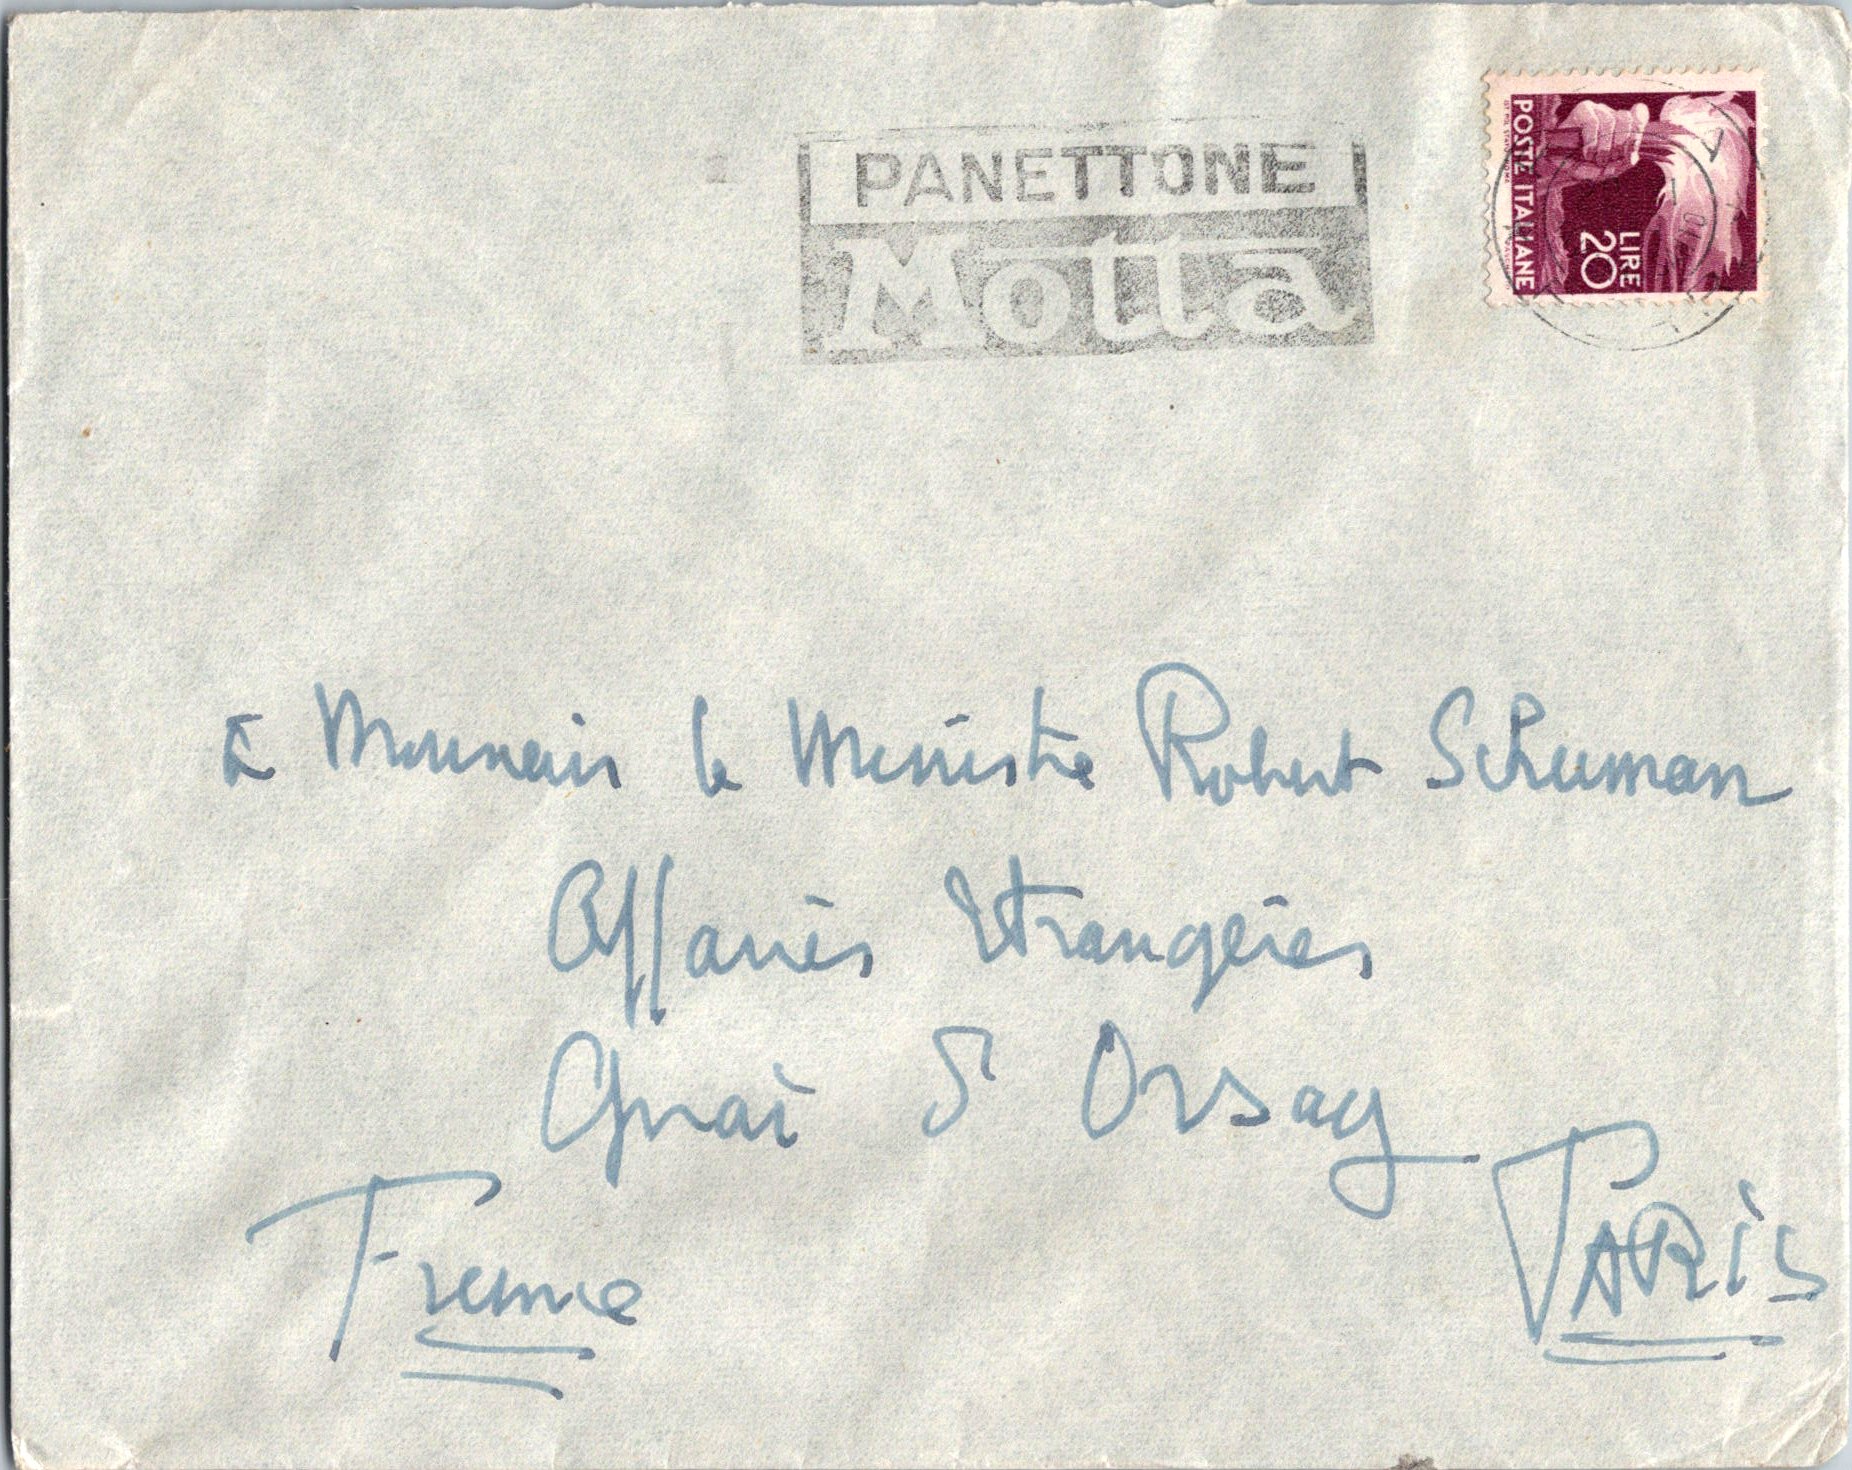 PANETTONE
Motta
POSTE ITALIANE
LIRE
20
à Monsieur le Ministre Robert Schuman
Affaires Etrangères
Quai d'Orsay
France
PARIS